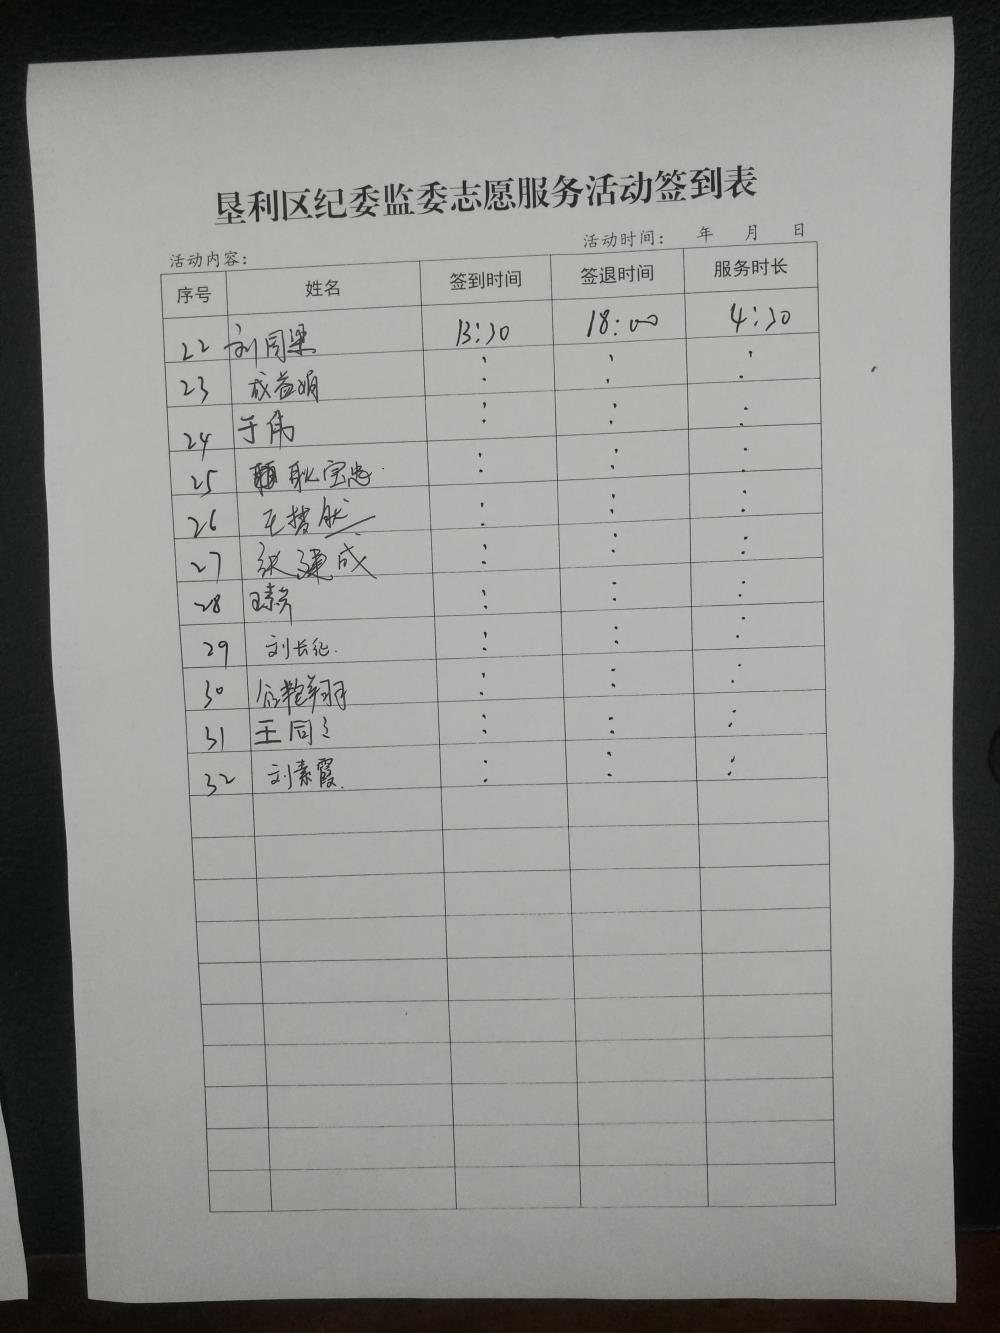 垦利区纪委监委志愿服务活动签到表
活动内容： 活动时间： 年 月 日
序号 姓名 签到时间 签退时间 服务时长
22 刘同梁 13:30 18:00 4:30
23 成益娟 : : :
24 于伟 : : :
25 耿宝忠 : : :
26 王 : : :
27 张建成 : : :
28 : : :
29 刘长征 : : :
30 : : :
31 王同 : : :
32 刘素霞 : : :